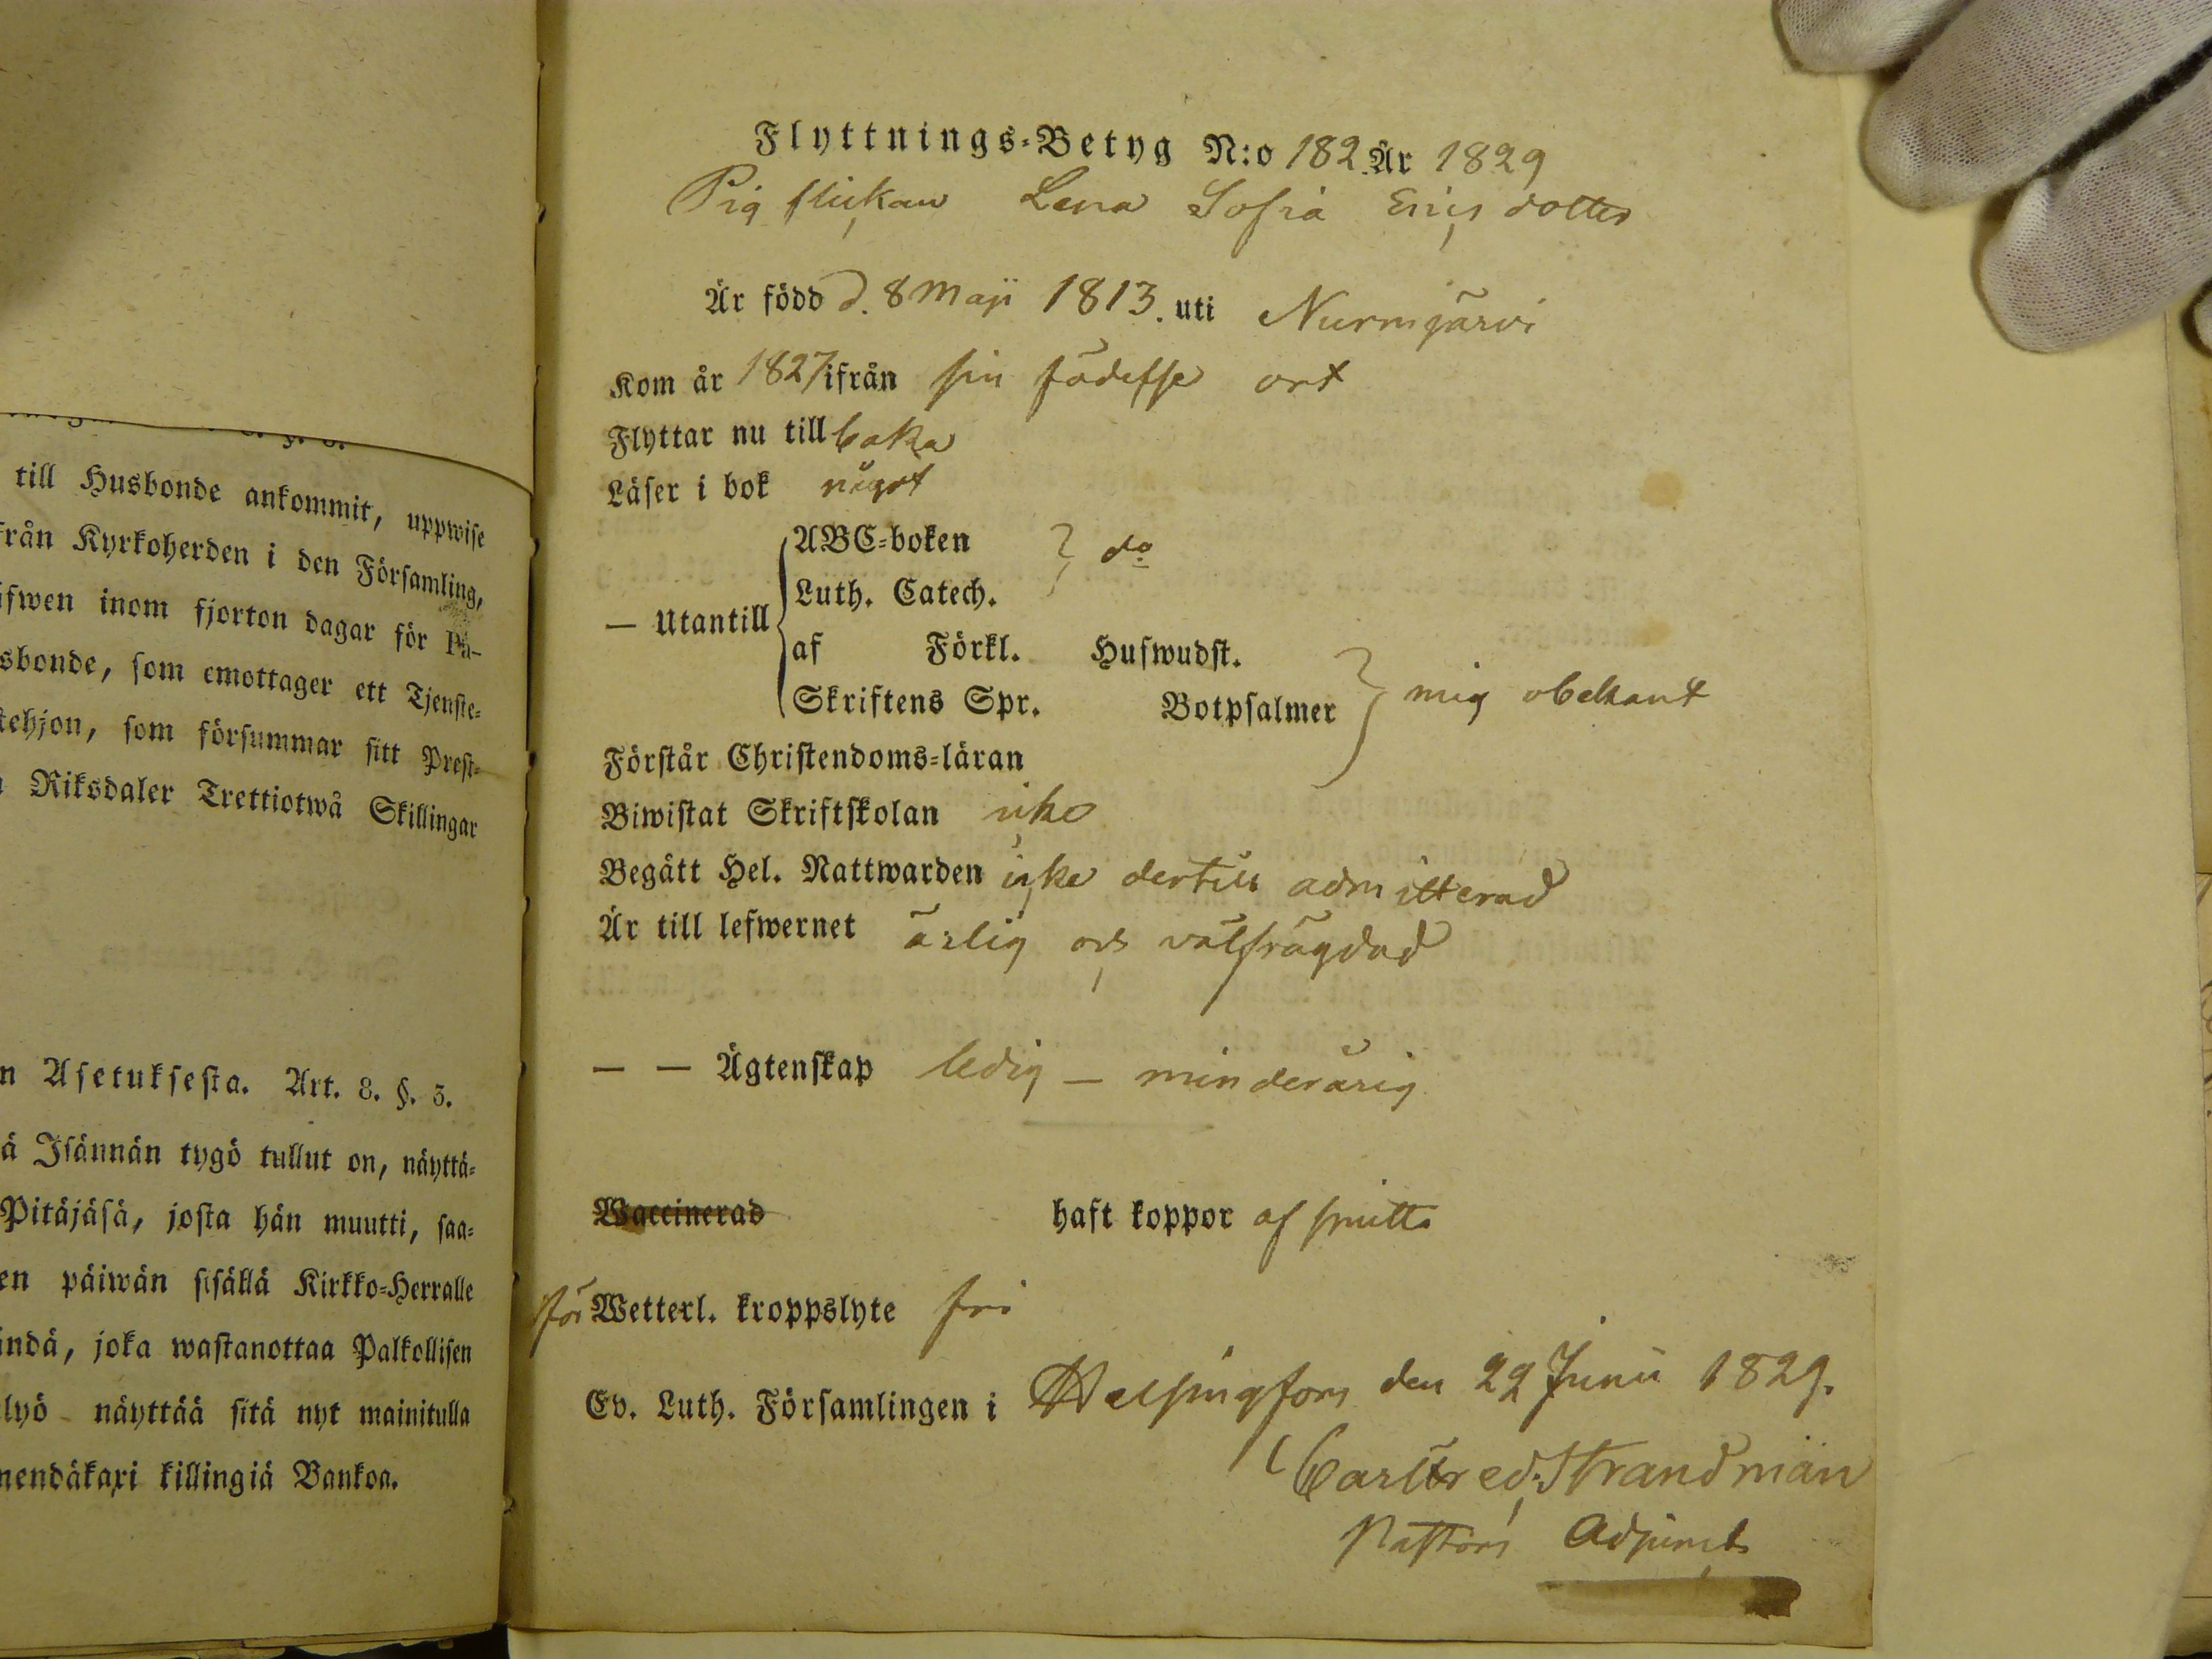 till Husbonde ankommit, uppwise
från Kyrkoherden i den Församling,
ifwen inom fjorton dagar för Pa-
sbonde, som emottager ett Tjenste-
tehjon, som försummar sitt Prest-
Riksdaler Trettiotwå Skillingar
n Asetuksesta. Art. 8. §. 3.
ä Isännän tygö tullut on, näyttä-
Pitäjäsä, josta hän muutti, saa-
en päiwän sisällä Kirkko-Herralle
indä, joka wastanottaa Palkollisen
lyö näyttää sitä nyt mainitulla
nendäkaxi killingiä Bankoa.
Flyttnings-Betyg N:o 182 År 1829
Pig flickan Lena Sofia Erics dotter
Är född d. 8 Maji 1813. uti Nurmijärvi
Kom år 1827 ifrån sin födelse ort
Flyttar nu till baka
Läser i bok något
— Utantill
ABC-boken
Luth. Catech.
do
af Förkl. Hufwudst.
Skriftens Spr. Botpsalmer
mig obekant
Förstår Christendoms-läran
Biwistat Skriftskolan icke
Begått Hel. Nattwarden icke dertill admitterad
Är till lefwernet ärlig och välfrägdad
— — Ägtenskap ledig — minderårig
Waccinerad haft koppor af smitta
för Wetterl. kroppslyte fri
Ev. Luth. Församlingen i Helsingfors den 22 Junii 1829.
Carl Fred. Strandman
Pastors Adjunct